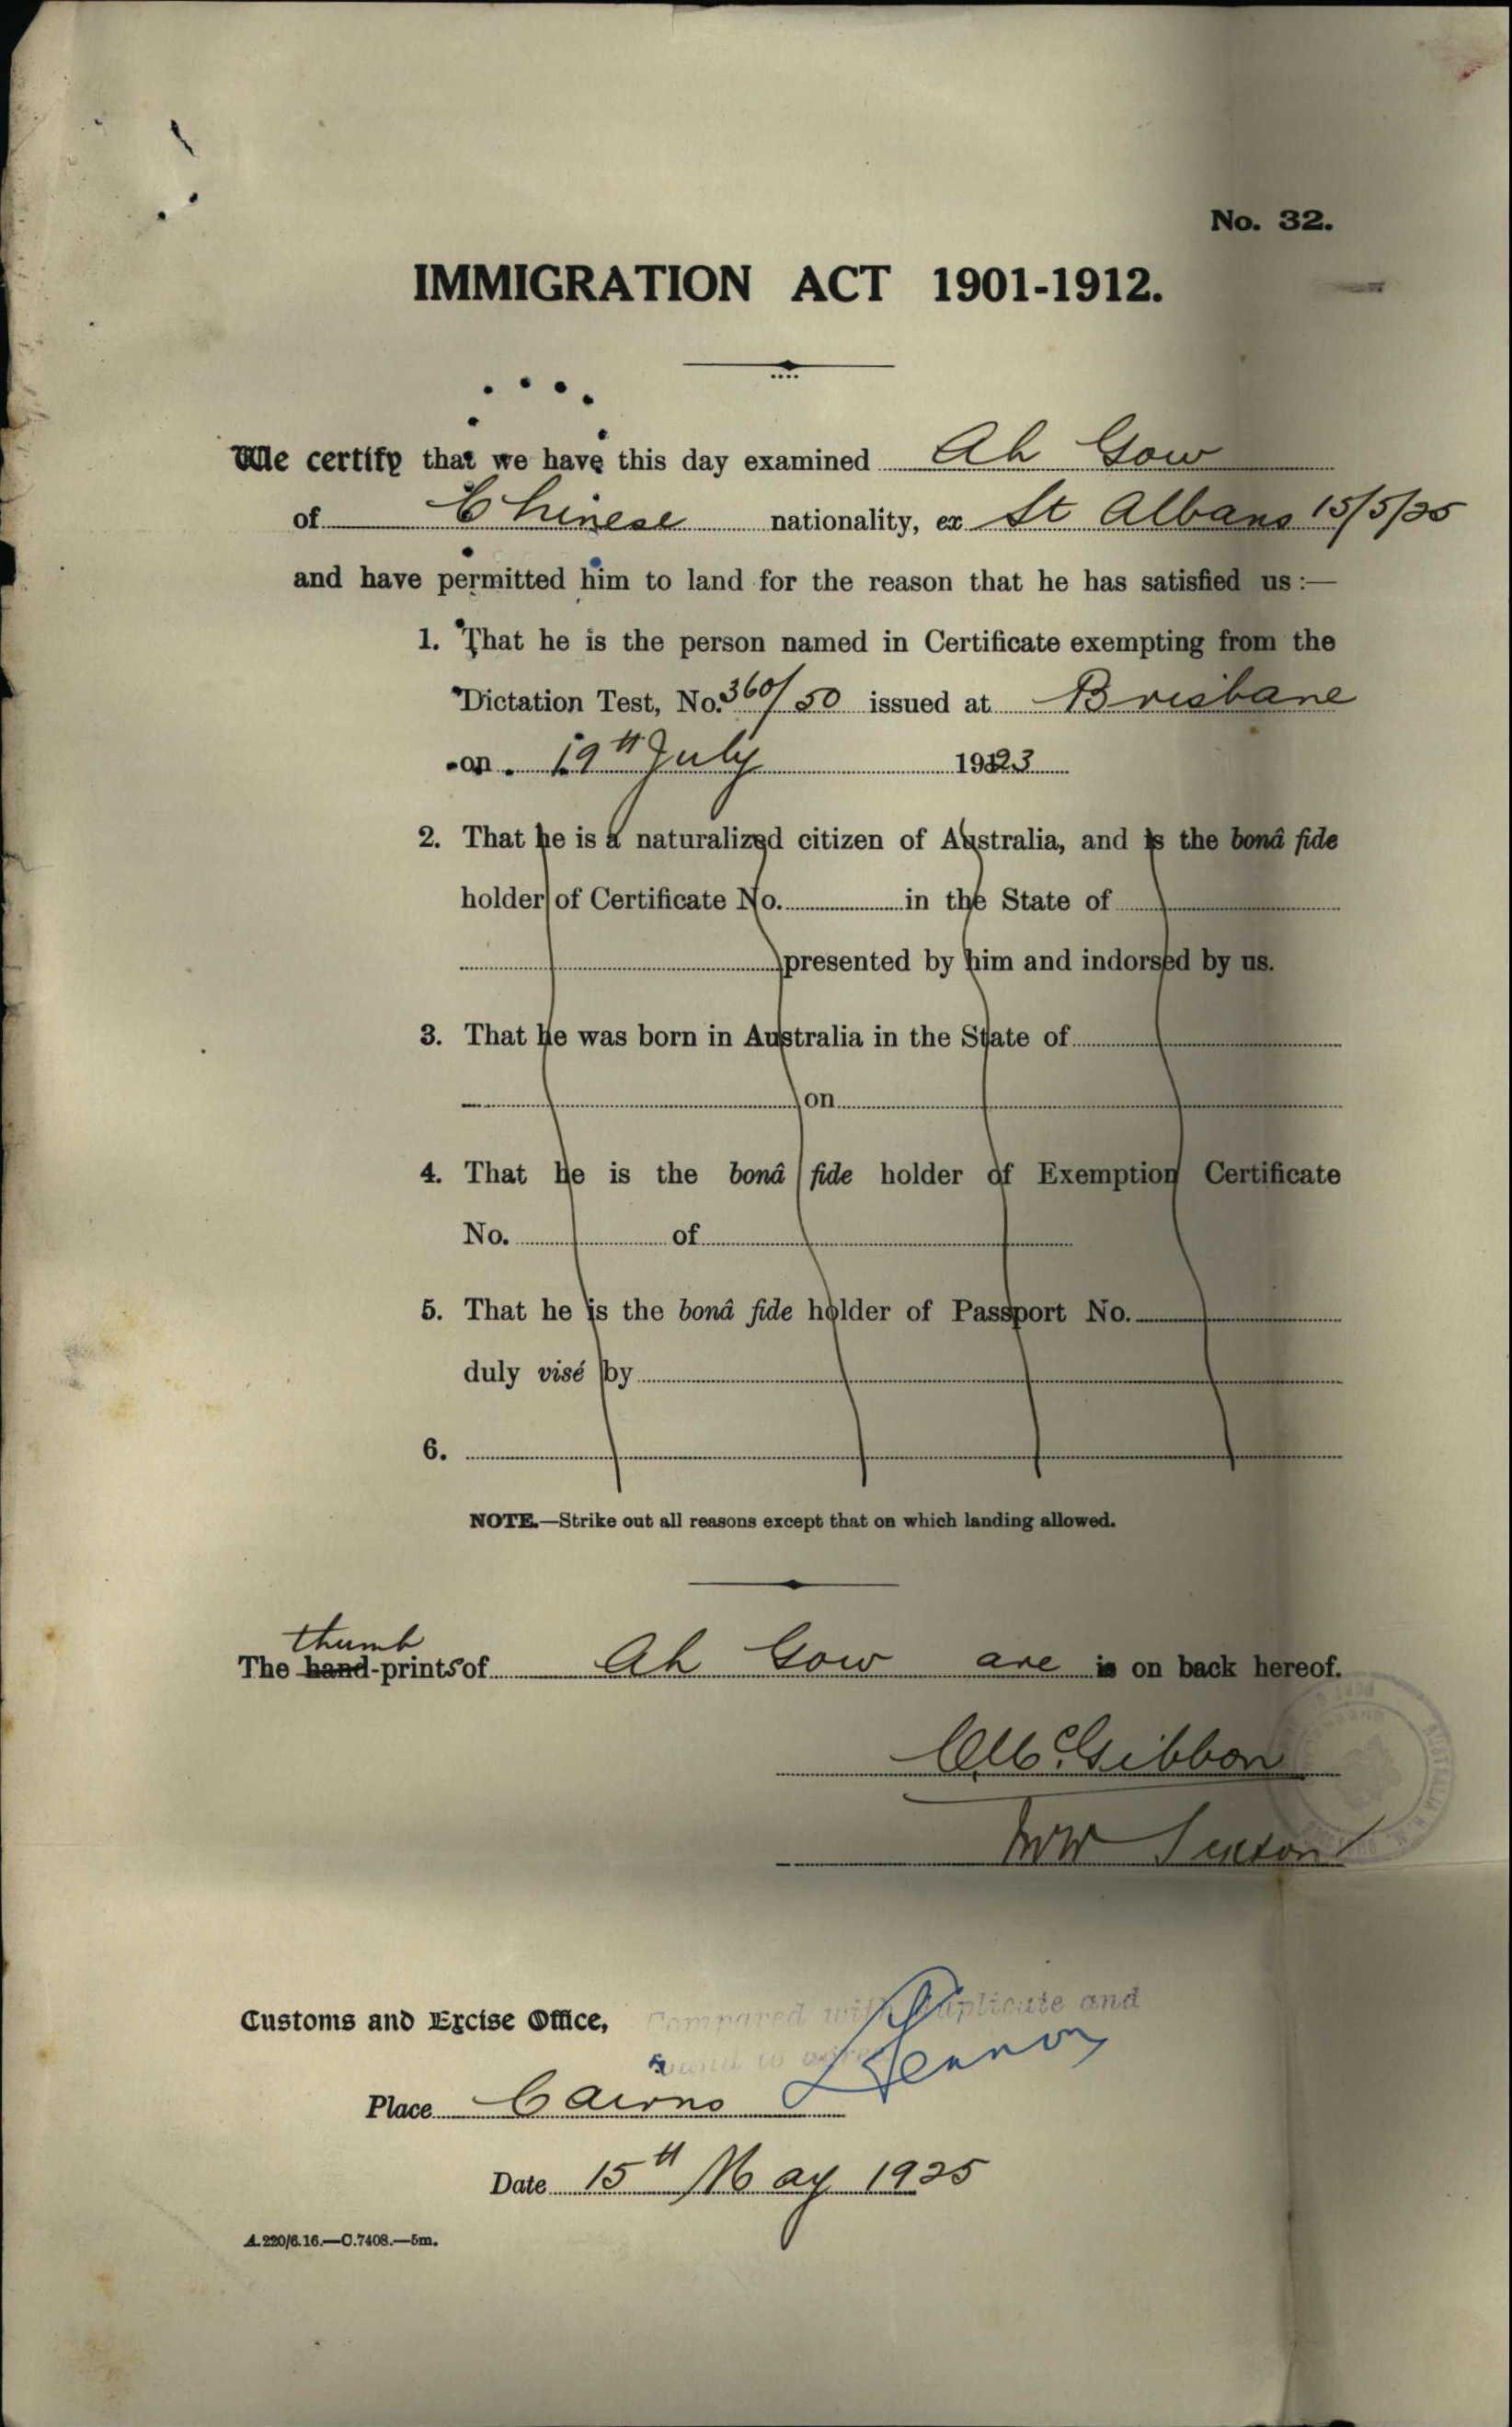 No. 32.
IMMIGRATION ACT 1901-1912.
We certify that we have this day examined Ah Gow
of Chinese nationality, ex St Albans 15/5/25
and have permitted him to land for the reason that he has satisfied us :—
1. That he is the person named in Certificate exempting from the
Dictation Test, No. 360/50 issued at Brisbane
on 19th July 1923
2. That he is a naturalized citizen of Australia, and is the bonâ fide
holder of Certificate No. in the State of
presented by him and indorsed by us.
3. That he was born in Australia in the State of
on
4. That he is the bonâ fide holder of Exemption Certificate
No. of
5. That he is the bonâ fide holder of Passport No.
duly visé by
6.
NOTE.—Strike out all reasons except that on which landing allowed.
thumb
The hand-prints of Ah Gow are is on back hereof.
McGibbon
Customs and Excise Office, Compared with duplicate and
found to agree
Place Cairns
Date 15th May 1925
A.220/6.16.—C.7408.—5m.